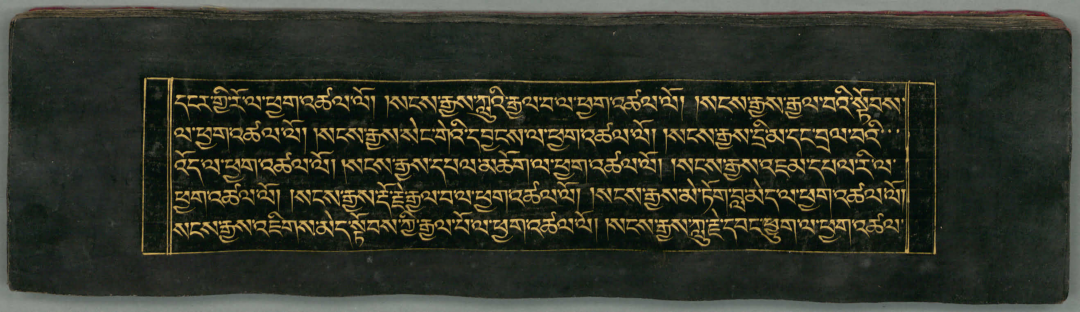 དང་གྱི་རོ་ལ་ཕྱག་འཚལ་ལོ། །སངས་རྒྱས་ཀླུའི་རྒྱལ་བ་ལ་ཕྱག་འཚལ་ལོ། །སངས་རྒྱས་རྒྱལ་བའི་སྟོབས་
ལ་ཕྱག་འཚལ་ལོ། །སངས་རྒྱས་སེང་གེའི་དབྱངས་ལ་ཕྱག་འཚལ་ལོ། །སངས་རྒྱས་དྲི་མ་དང་བྲལ་བའི་
འོད་ལ་ཕྱག་འཚལ་ལོ། །སངས་རྒྱས་དཔལ་མཆོག་ལ་ཕྱག་འཚལ་ལོ། །སངས་རྒྱས་འཇམ་དཔལ་རི་ལ་
ཕྱག་འཚལ་ལོ། །སངས་རྒྱས་རྡོ་རྗེ་རྒྱལ་བ་ལ་ཕྱག་འཚལ་ལོ། །སངས་རྒྱས་མེ་ཏོག་བླ་མེད་ལ་ཕྱག་འཚལ་ལོ།
སངས་རྒྱས་འཇིགས་མེད་སྟོབས་ཀྱི་རྒྱལ་པོ་ལ་ཕྱག་འཚལ་ལོ། །སངས་རྒྱས་ཀླུ་རྗེ་དབང་ཕྱུག་ལ་ཕྱག་འཚལ་